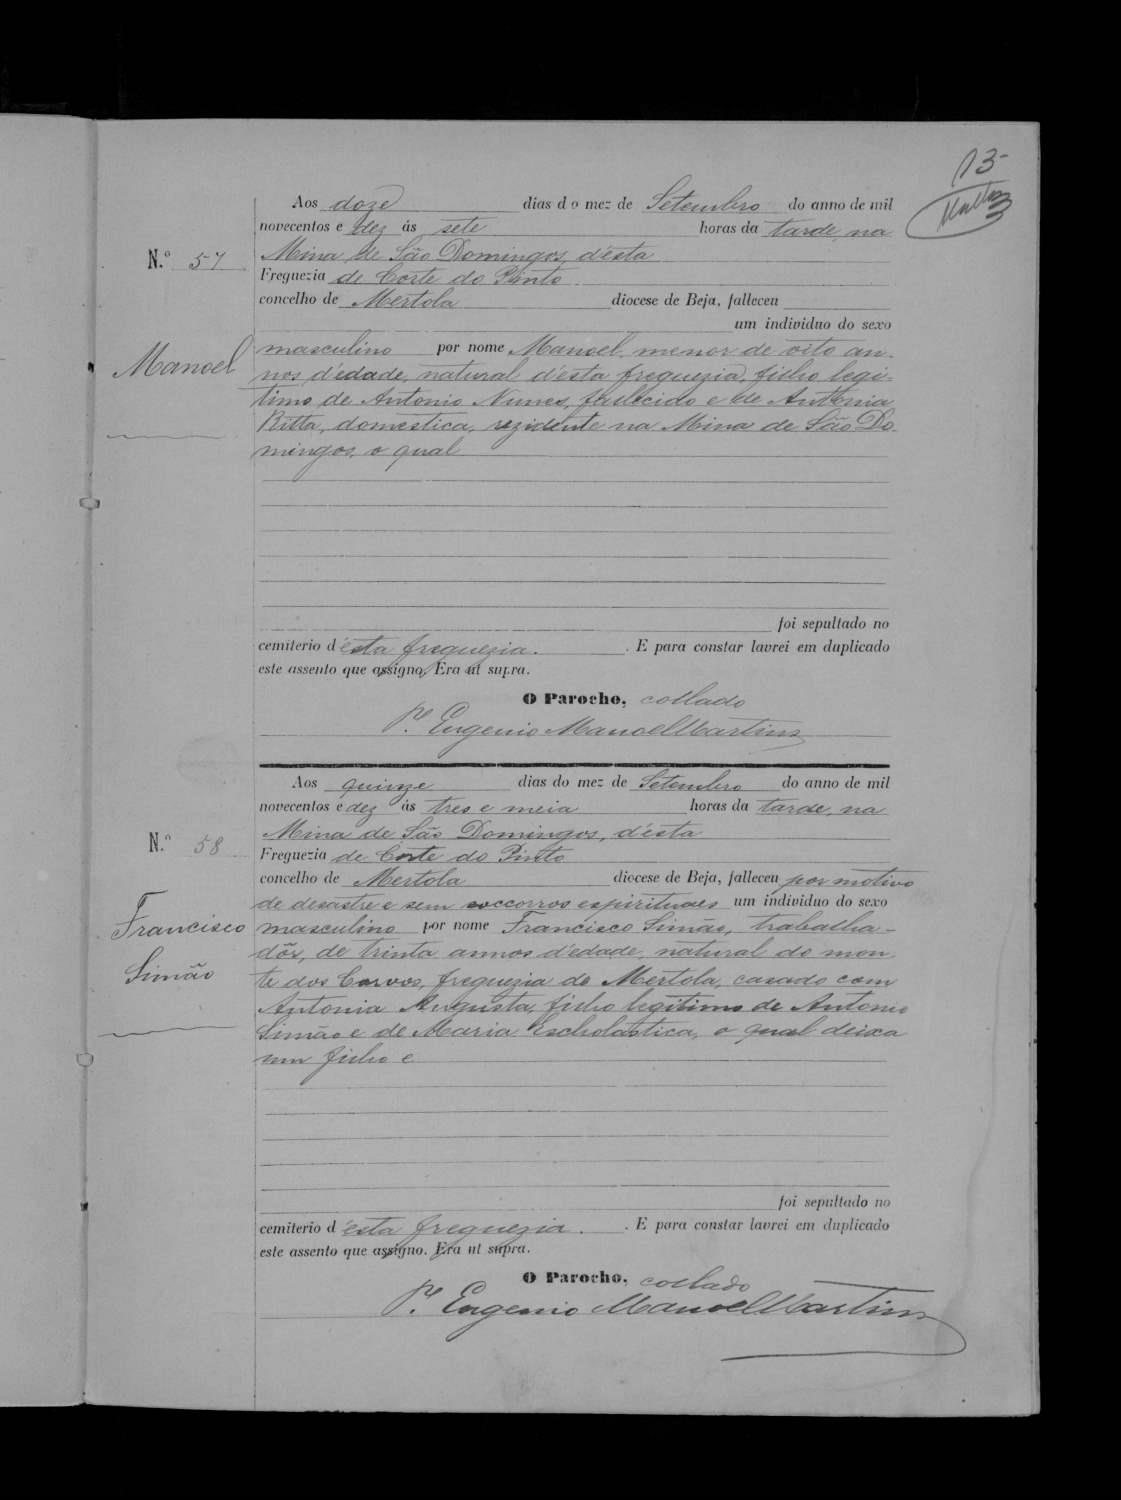 13
Aos doze dias do mez de Setembro do anno de mil
novecentos e dez ás sete horas da tarde, na
N.º 57
Mina de São Domingos, d'ésta
Freguezia de Corte do Pinto
concelho de Mertola diocese de Beja, falleceu
um individuo do sexo
Manoel
masculino por nome Manoel, menor de oito an-
nos d'edade, natural d'esta freguezia, filho legi-
timo de Antonio Nunes, fallecido e de Antonia
Ritta, domestica, rezidente na Mina de São Do-
mingos, o qual
foi sepultado no
cemiterio d'ésta freguezia. E para constar lavrei em duplicado
este assento que assigno. Era ut supra.
O Parocho, collado
P.e Eugenio Manoel Martins
Aos quinze dias do mez de Setembro do anno de mil
novecentos e dez ás tres e meia horas da tarde, na
N.º 58
Mina de São Domingos, d'ésta
Freguezia de Corte do Pinto
concelho de Mertola diocese de Beja, falleceu por motivo
de desastre e sem soccorros espirituaes um individuo do sexo
Francisco
Simão
masculino por nome Francisco Simão, trabalha-
dôr, de trinta annos d'edade, natural do mon-
te dos Corvos, freguezia de Mertola, casado com
Antonia Augusta, filho legitimo de Antonio
Simão e de Maria Escholastica, o qual deixa
um filho e
foi sepultado no
cemiterio d'ésta freguezia. E para constar lavrei em duplicado
este assento que assigno. Era ut supra.
O Parocho, collado
P.e Eugenio Manoel Martins